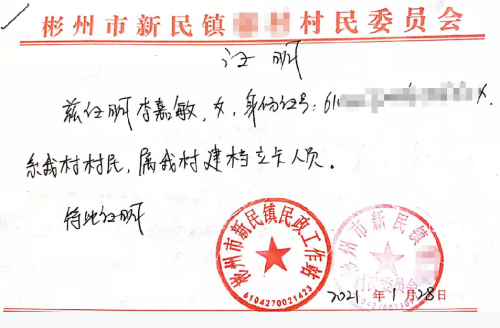 彬州市新民镇 村民委员会
证明
兹证明李嘉敏,女,身份证号:61 X.
系我村村民,属我村建档立卡人员。
特此证明
彬州市新民镇民政工作站
6104270021423
彬州市新民镇
村民委员会
2021年1月28日